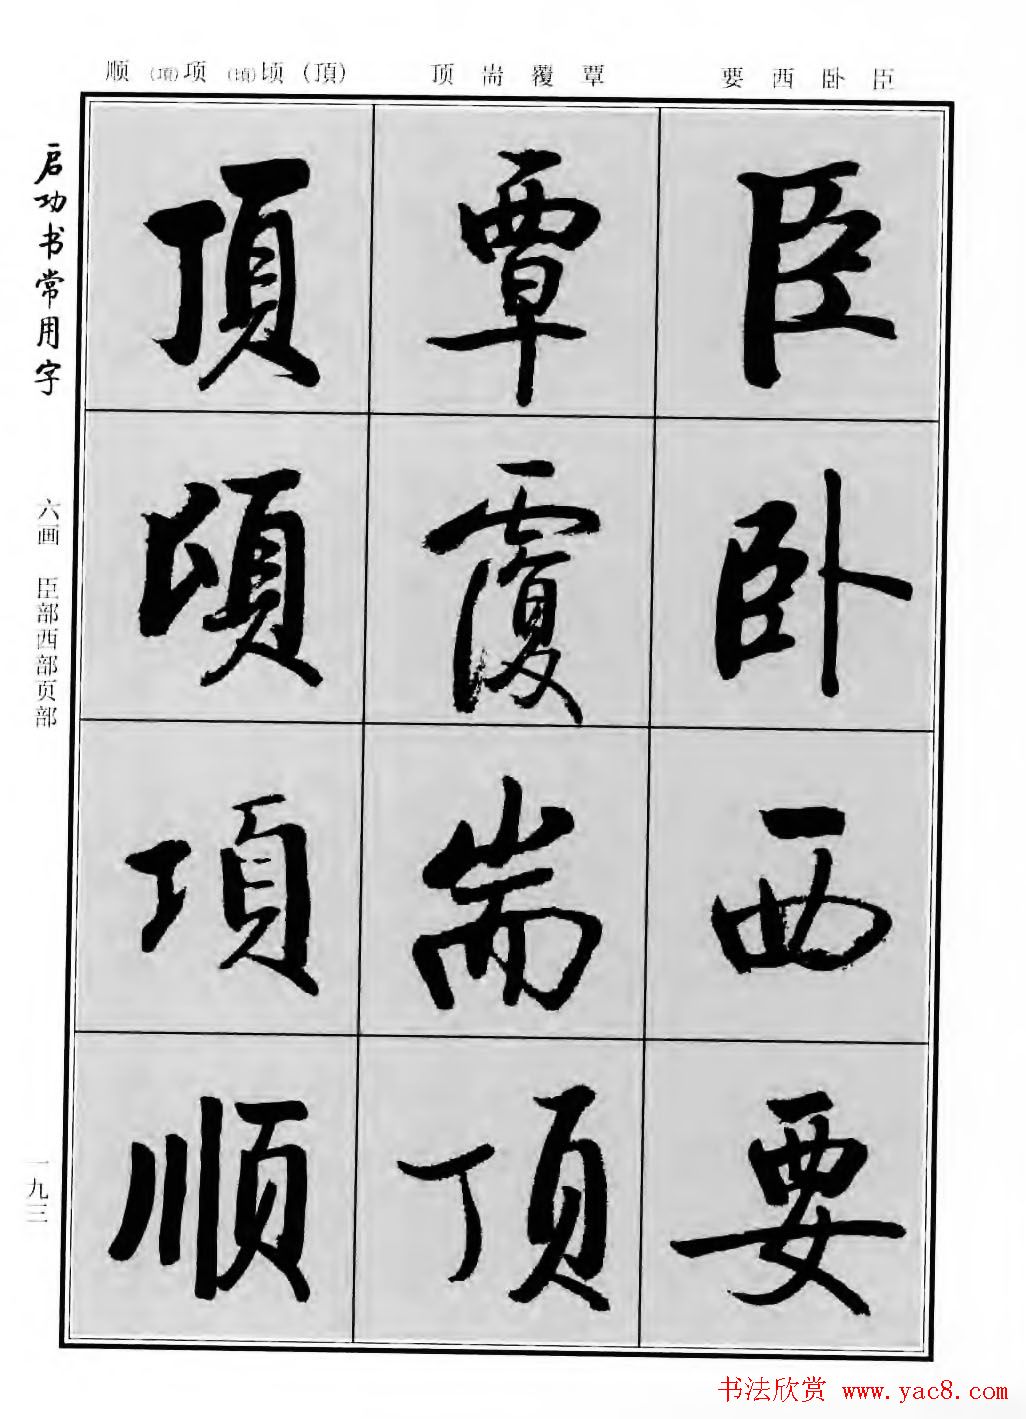 顺(項)项(頃)顷(頂) 顶耑覆覃 要西卧臣
启功书常用字
六画 臣部西部页部
一九三
臣卧西要
覃覆耑顶
頂頃項顺
书法欣赏 www.yac8.com